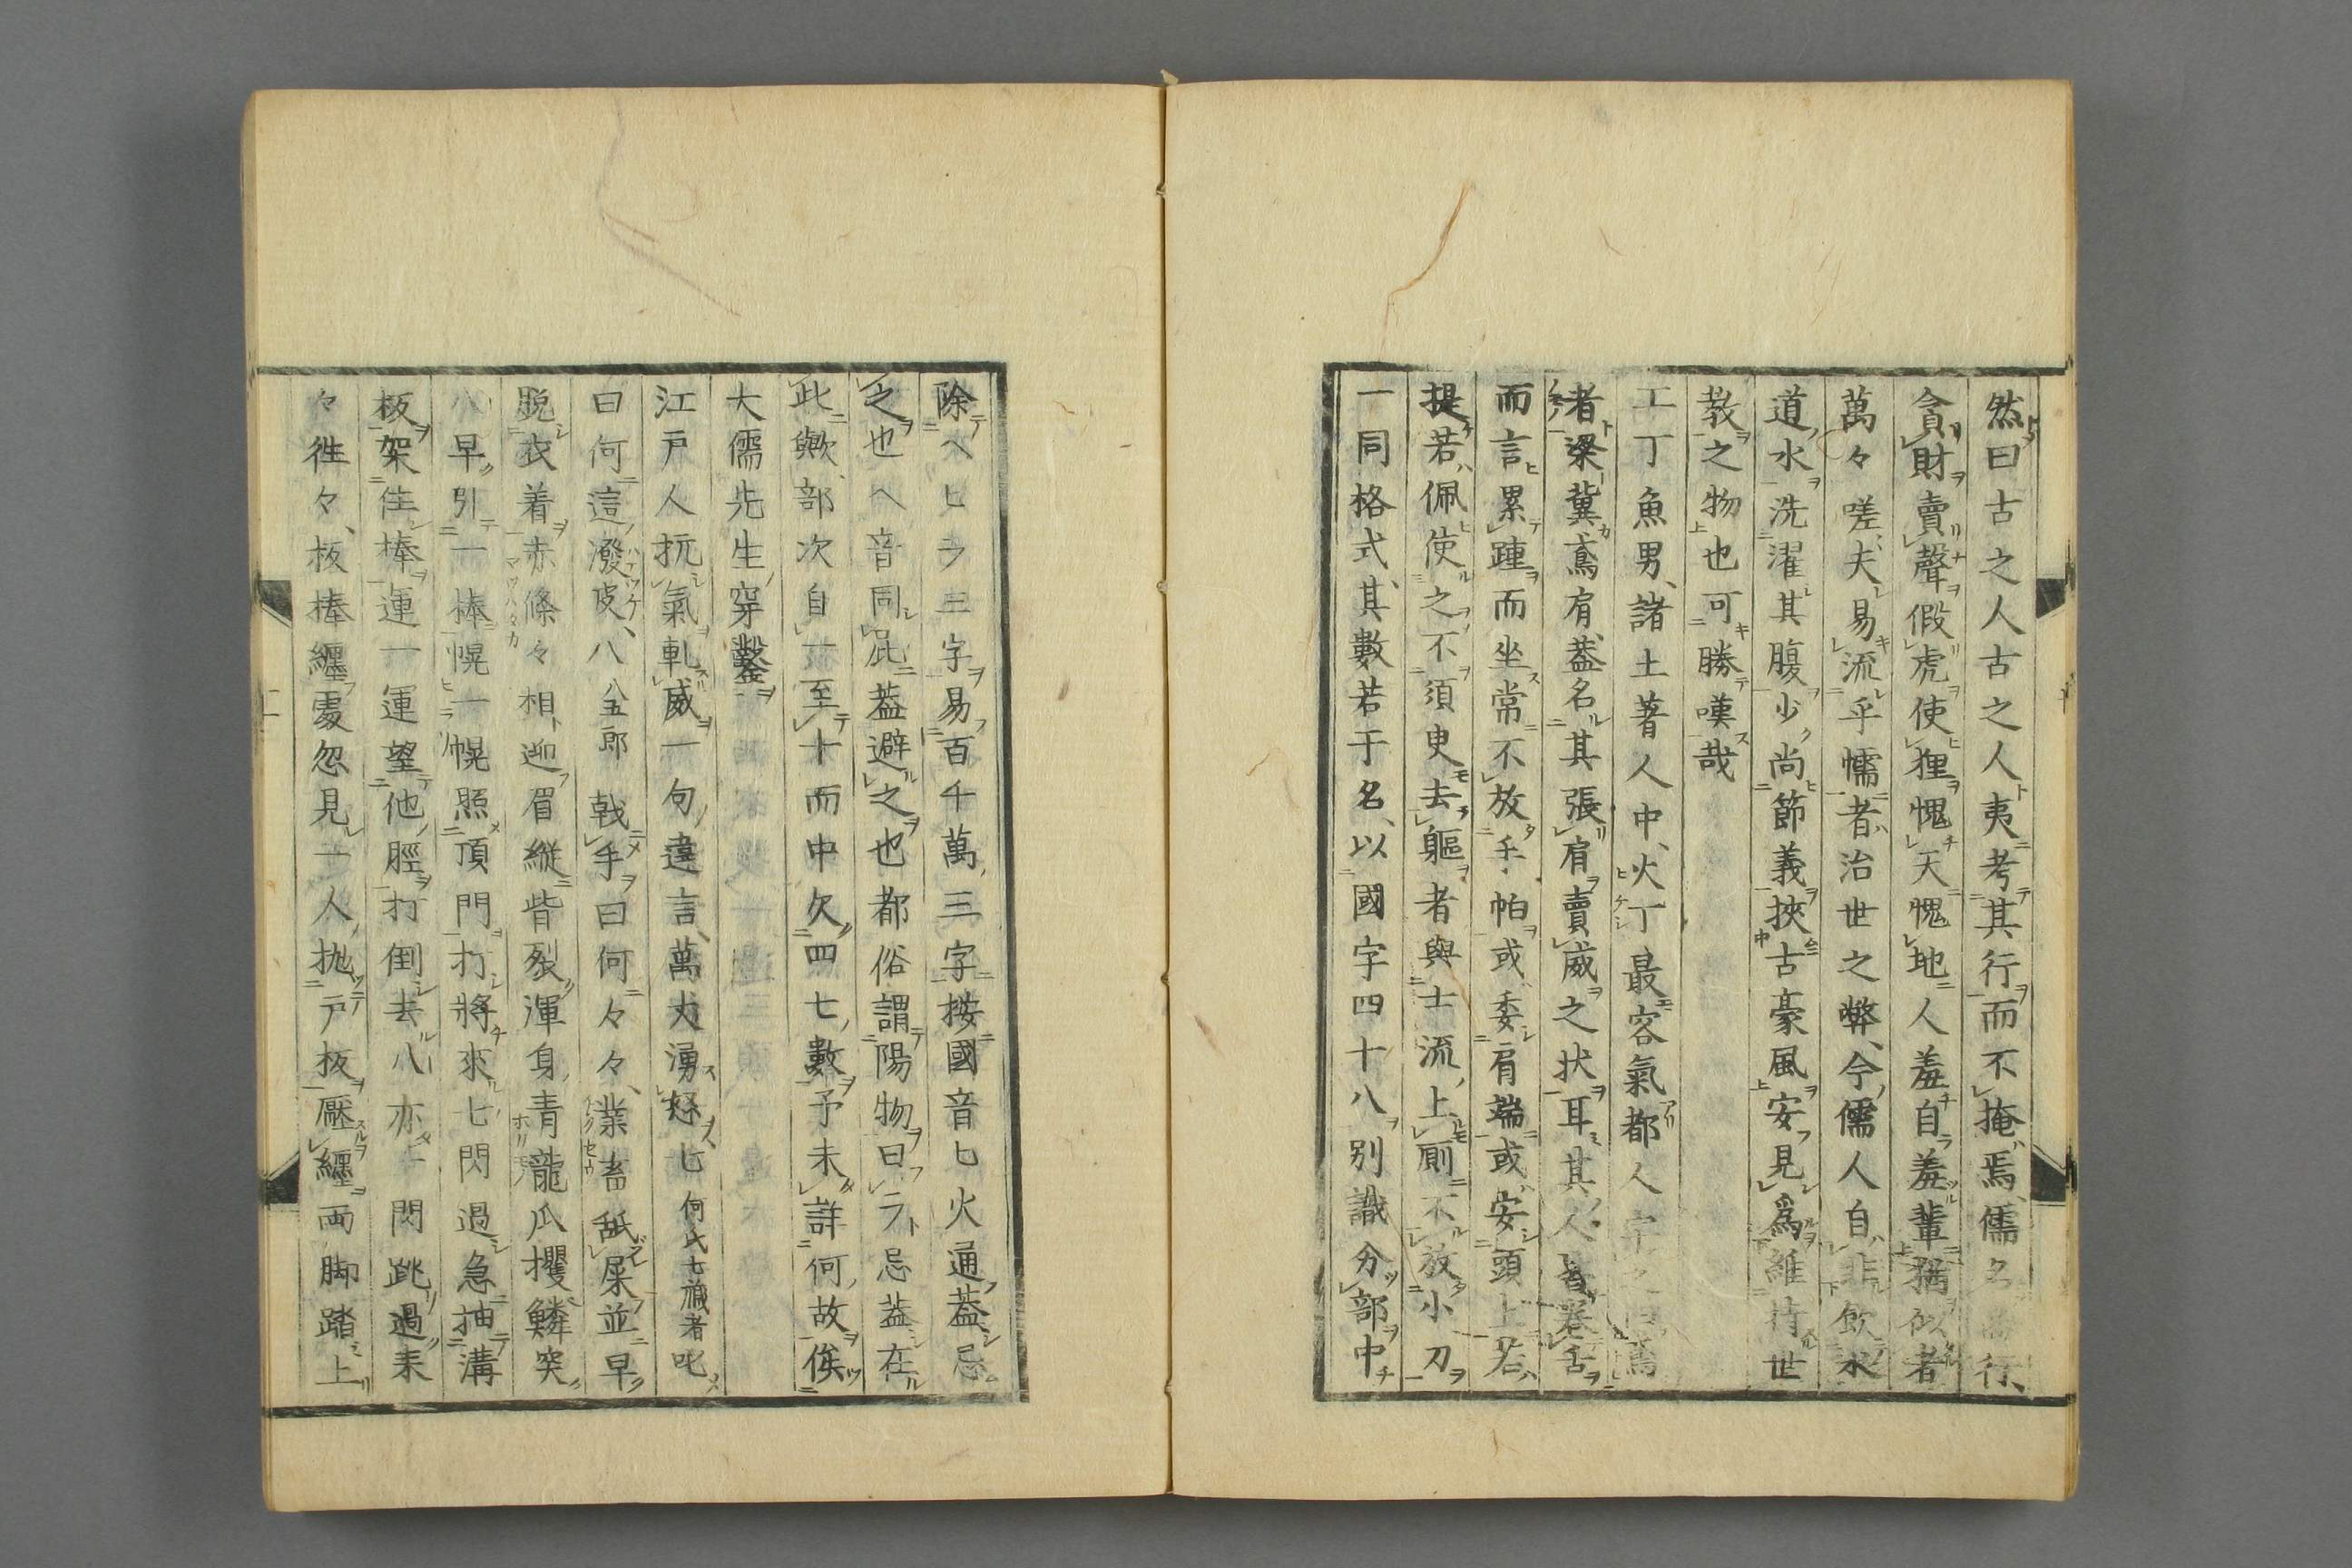 然曰古之人古之人夷考其行而不掩焉儒名行
貪財賣聲假虎使狸愧天愧地人羞自羞輩猶似者
萬々嗟夫易流乎懦者治世之弊今儒人自非飲水
道水洗濯其腹少尚節義挾古豪風安見爲維持世
教之物也可勝嘆哉
工丁魚男諸土著人中火丁最容氣都人字之
者梁冀鳶肩蓋名其張肩賣威之状耳其人皆卷舌
而言累踵而坐常不放手帕或委肩端或安頭上若
提若佩使之不須臾去軀者與士流上厠不放小刀
一同格式其數若干名以國字四十八別識分部中
除ヘヒラ三字易百千萬三字按國音ヒ火通蓋忌
之也ヘ音同屁蓋避之也都俗謂陽物曰ラ忌蓋在
此歟部次自一至十而中欠四七數予未詳何故俟
大儒先生穿鑿
江戸人抗氣軋威一句違言萬丈湧怒七何氏七識者叱
曰何這潑皮八八五郎戟手曰何々々業畜舐屎並早
脱衣着赤條々相迎眉縱眥裂渾身青龍爪攫鱗突
八早引一棒幌一幌照頂門打將來七閃過急抽溝
板架住棒運一運望他脛打倒去八亦一閃跳過来
々徃々板棒纏處忽見一人抛戸板壓纏両脚踏上
二